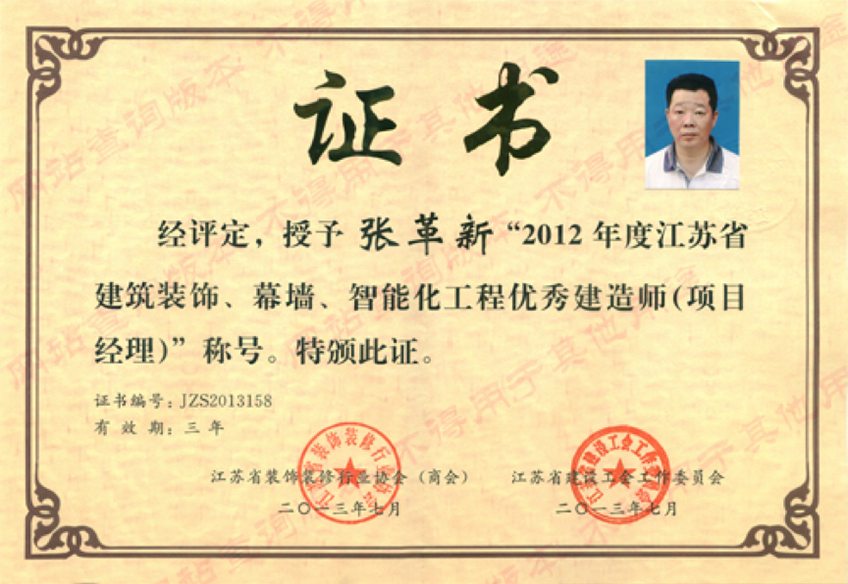 证书
经评定，授予 张革新 “2012 年度江苏省
建筑装饰、幕墙、智能化工程优秀建造师(项目
经理)”称号。特颁此证。
证书编号：JZS2013158
有 效 期：三 年
江苏省装饰装修行业协会（商会） 江苏省建设工会工作委员会
二〇一三年七月 二〇一三年七月
江苏省装饰装修行业协会
江苏省建设工会工作委员会
网站查询版本 不得用于其他用途